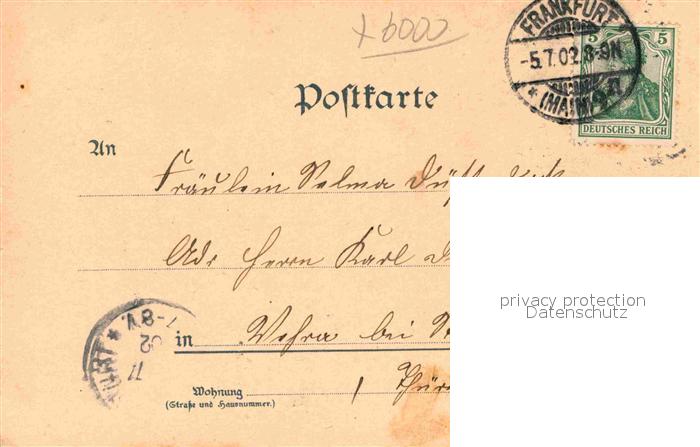 x6000
FRANKFURT
-5.7.02.8-9N
* (MAIN) *
5 5
DEUTSCHES REICH
Postkarte
An
Fräulein Selma
Adr Herrn Karl
in Vehra bei
Wohnung
(Straße und Hausnummer.)
Thür
7-8V.
02
privacy protection
Datenschutz